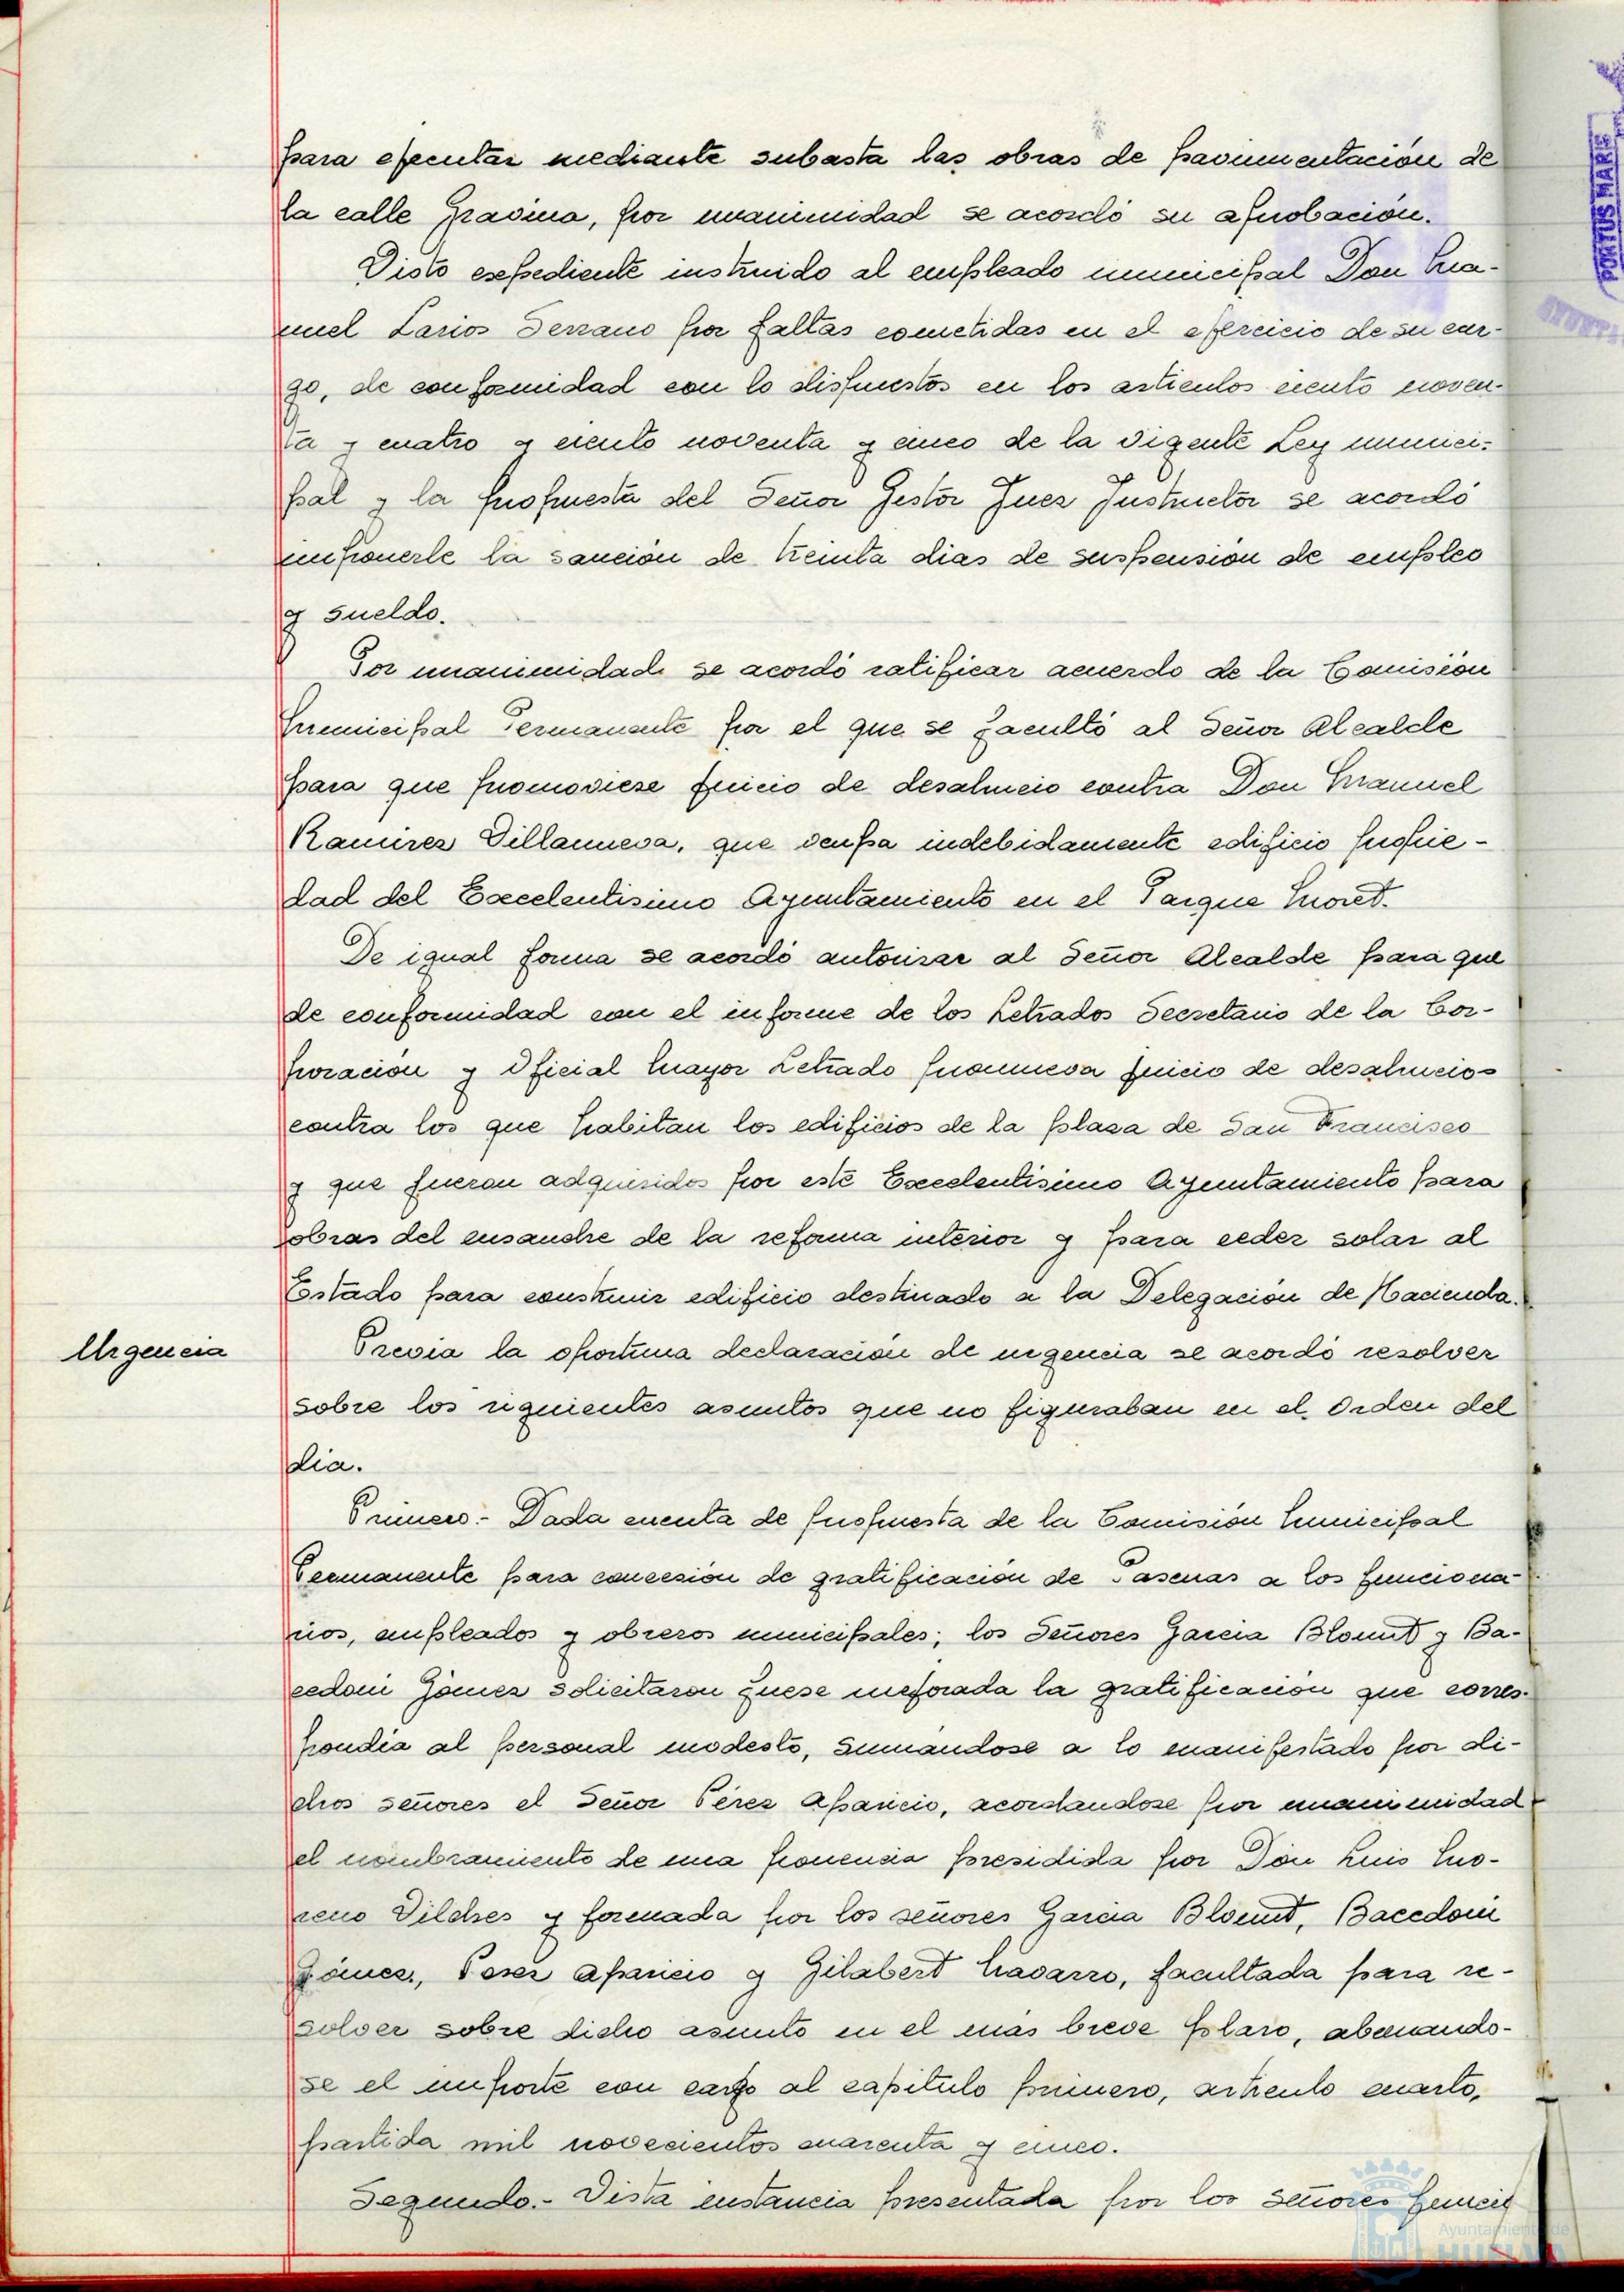 para ejecutar mediante subasta las obras de pavimentación de
la calle Gravina, por unanimidad se acordó su aprobación.
Visto expediente instruido al empleado municipal Don Ma-
nuel Larios Serrano por faltas cometidas en el ejercicio de su car-
go, de conformidad con lo dispuestos en los articulos ciento noven-
ta y cuatro y ciento noventa y cinco de la vigente Ley munici-
pal y la propuesta del Señor Gestor Juez Instructor se acordó
imponerle la sanción de treinta dias de suspensión de empleo
y sueldo.
Por unanimidad se acordó ratificar acuerdo de la Comisión
Municipal Permanente por el que se facultó al Señor Alcalde
para que promoviese juicio de desahucio contra Don Manuel
Ramirez Villanueva, que ocupa indebidamente edificio propie-
dad del Excelentisimo Ayuntamiento en el Parque Moret.
De igual forma se acordó autorizar al Señor Alcalde para que
de conformidad con el informe de los Letrados Secretario de la Cor-
poración y Oficial Mayor Letrado promueva juicio de desahucio
contra los que habitan los edificios de la plaza de San Francisco
y que fueron adquiridos por este Excelentisimo Ayuntamiento para
obras del ensanche de la reforma interior y para ceder solar al
Estado para construir edificio destinado a la Delegación de Hacienda.
Urgencia
Previa la oportuna declaración de urgencia se acordó resolver
sobre los siguientes asuntos que no figuraban en el Orden del
dia.
Primero.- Dada cuenta de propuesta de la Comisión Municipal
Permanente para concesión de gratificación de Pascuas a los funciona-
rios, empleados y obreros municipales; los Señores Garcia Blount y Ba-
cedoni Gómez solicitaron fuese mejorada la gratificación que corres-
pondia al personal modesto, sumandose a lo manifestado por di-
chos señores el Señor Pérez Aparicio, acordandose por unanimidad
el nombramiento de una ponencia presidida por Don Luis Mo-
reno Vilches y formada por los señores Garcia Blount, Bacedoni
Gómez, Perez Aparicio y Gilabert Navarro, facultada para re-
solver sobre dicho asunto en el mas breve plazo, abonando-
se el importe con cargo al capitulo primero, articulo cuarto,
partida mil novecientos cuarenta y cinco.
Segundo.- Vista instancia presentada por los Señores
PORTUS MARIS
Ayuntamiento de
HUELVA